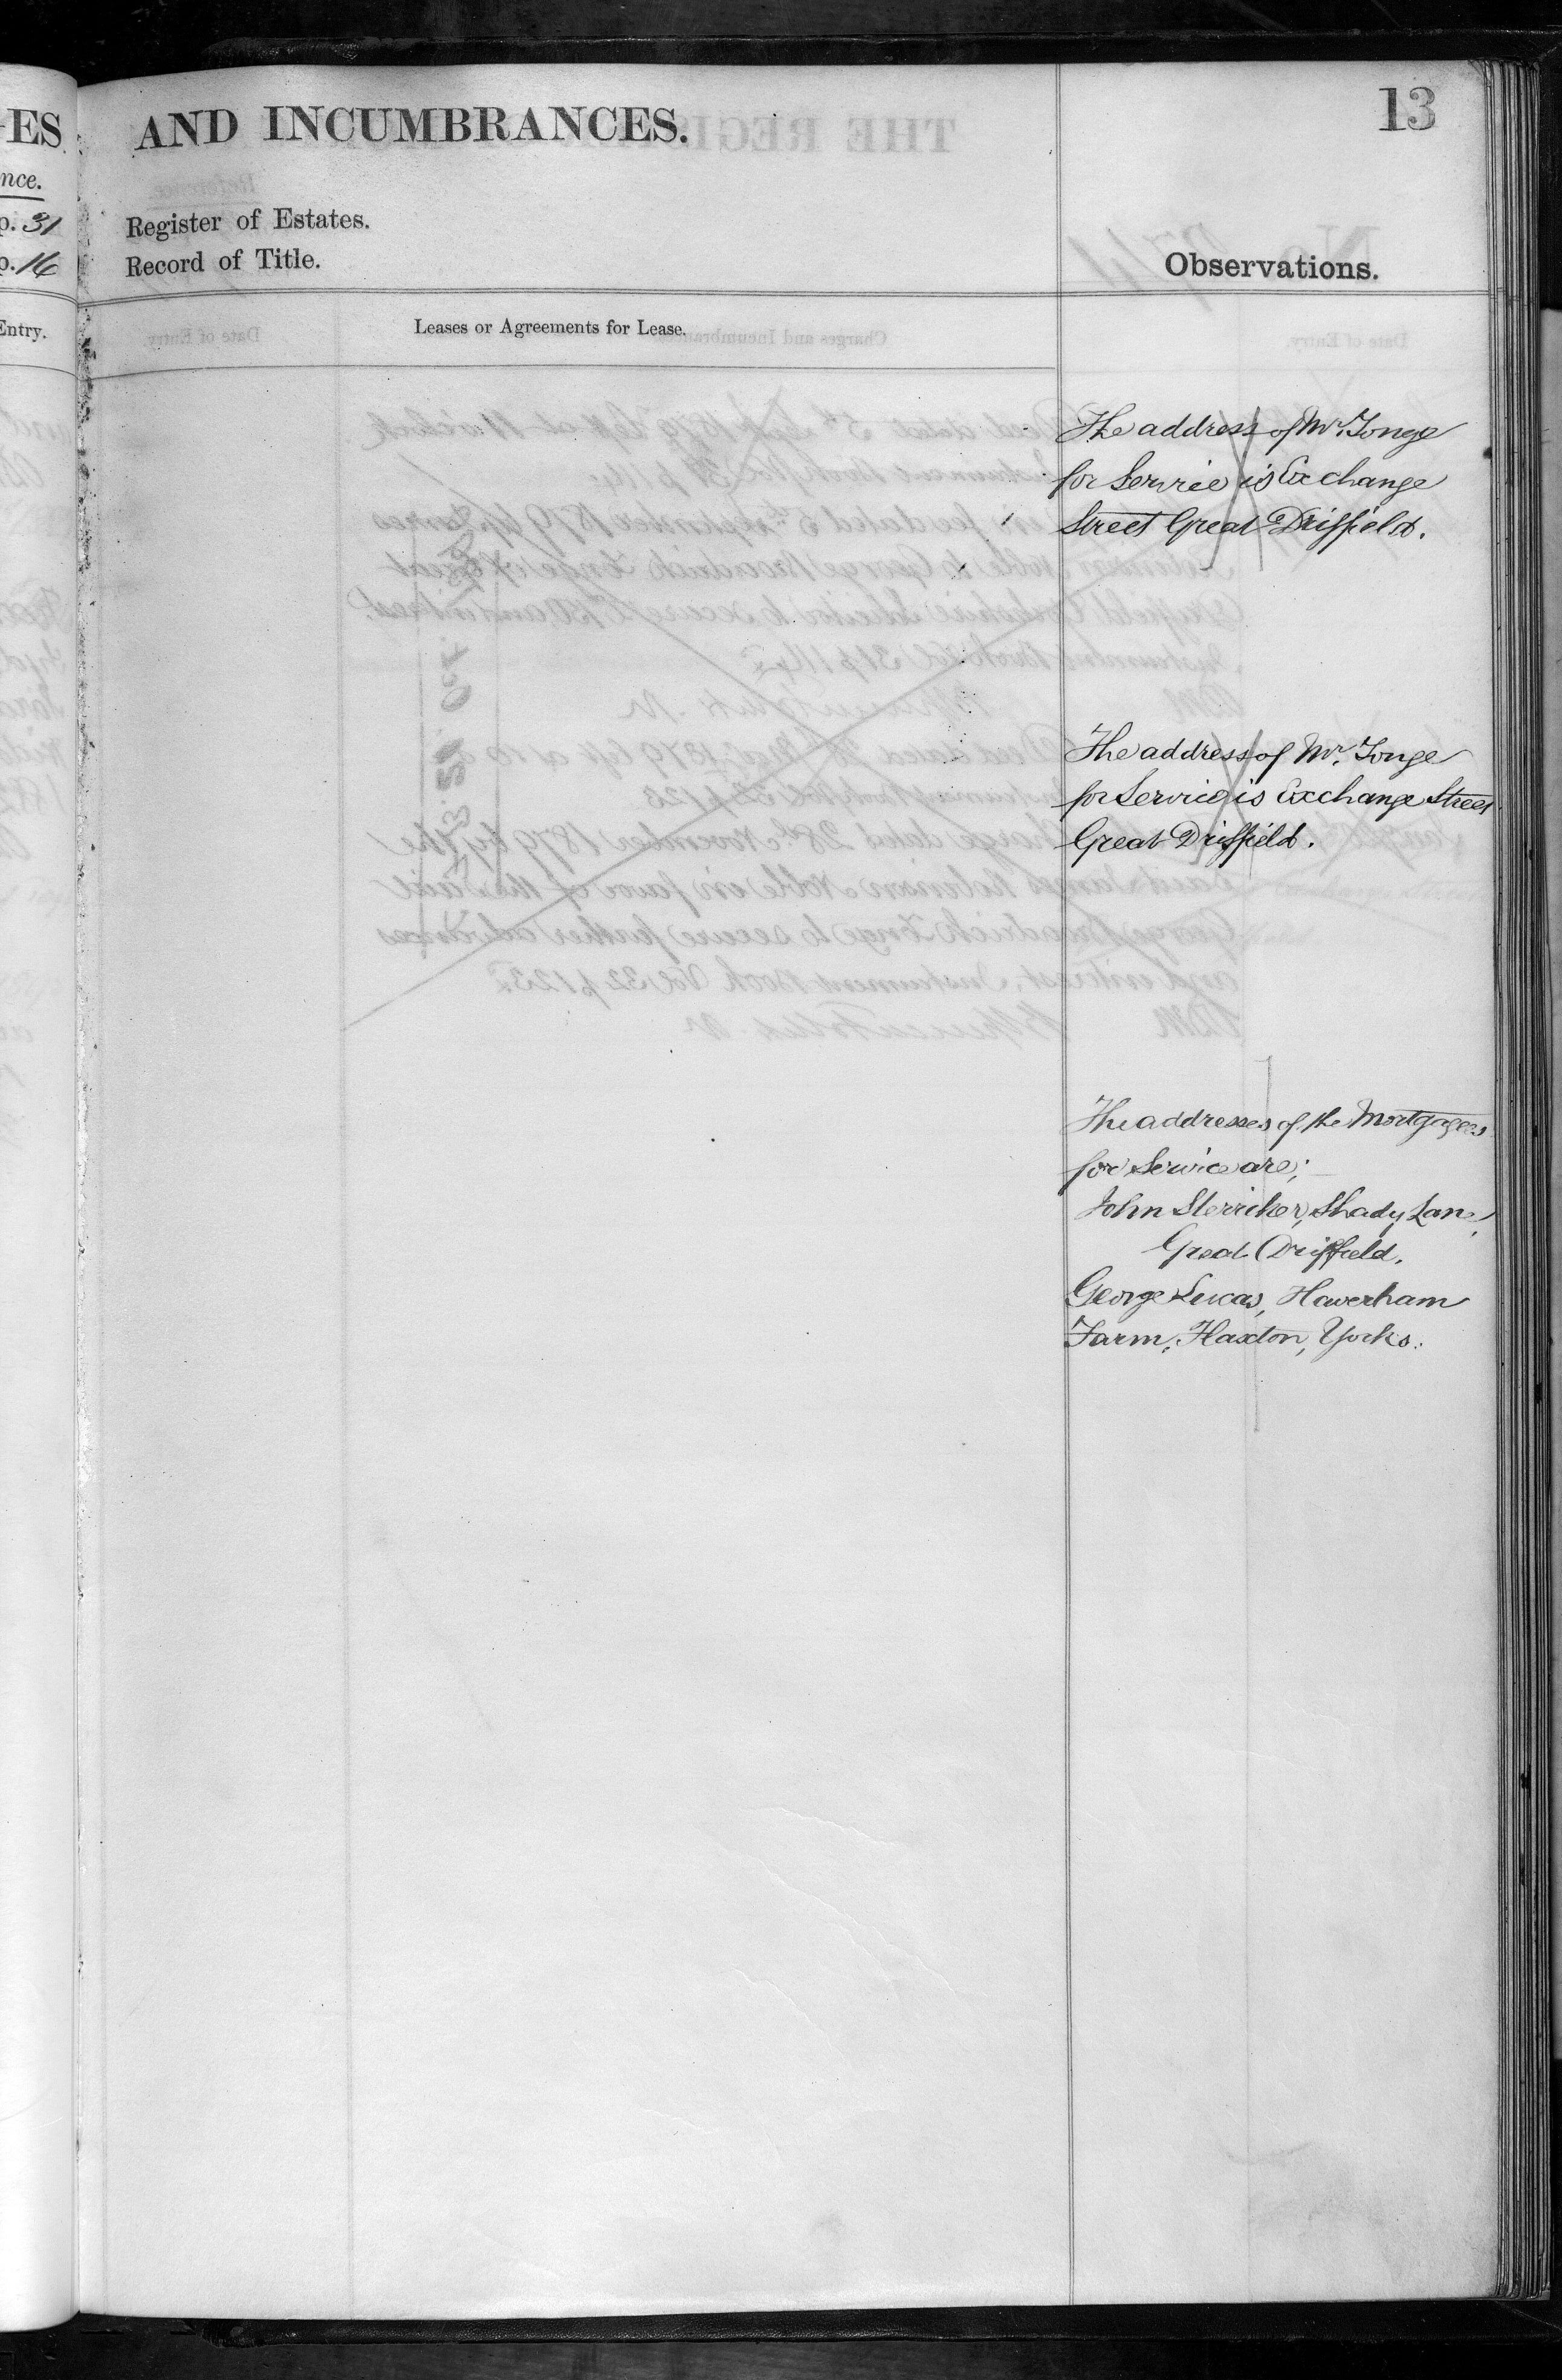 ES
nce.
p. 31
p. 16
Entry.
AND INCUMBRANCES.
13
Register of Estates.
Record of Title.
Observations.
Leases or Agreements for Lease.
The address of Mr. Tonge
for Service is Exchange
Street Great Driffield.
The address of Mr. Tonge
for Service is Exchange Street
Great Driffield.
The addresses of the Mortgagees
for Service are;
John Sterriker, Shady Lane,
Great Driffield.
George Lucas, Haverham
Farm, Haxton, Yorks.